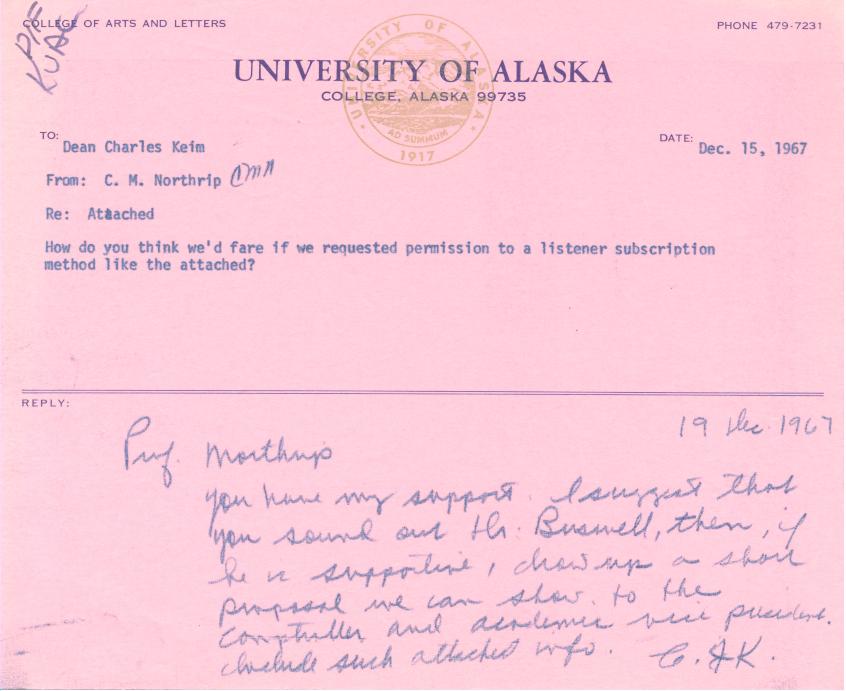 COLLEGE OF ARTS AND LETTERS
PHONE 479-7231
KUAC
UNIVERSITY OF ALASKA
COLLEGE, ALASKA 99735
UNIVERSITY OF ALASKA
AD SUMMUM
1917
TO: Dean Charles Keim
DATE: Dec. 15, 1967
From: C. M. Northrip CMN
Re: Attached
How do you think we'd fare if we requested permission to a listener subscription
method like the attached?
REPLY:
19 Dec. 1967
Prof. Northrip
You have my support. I suggest that
you sound out Mr. Buswell, then, if
he is supportive, draw up a short
proposal we can show to the
comptroller and academic vice president.
Include such attached info. C.J.K.